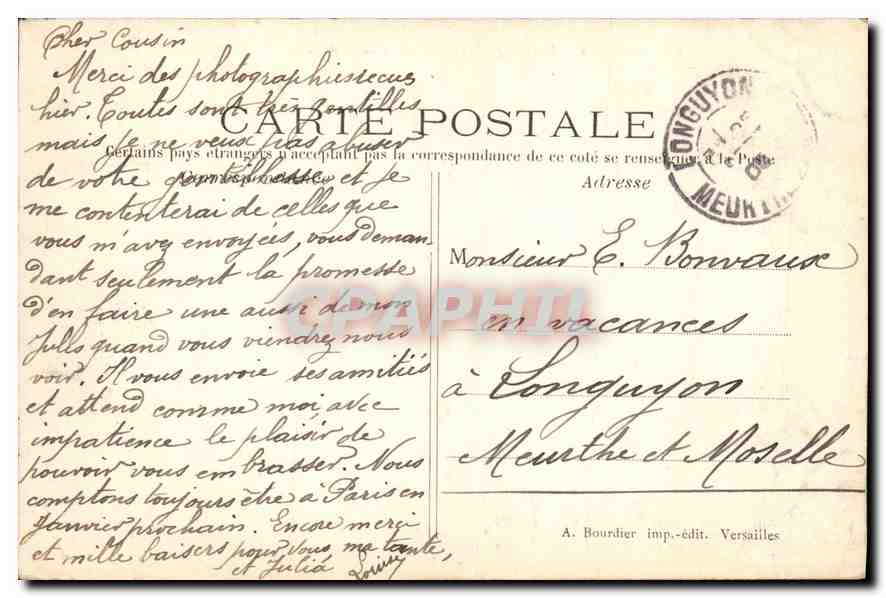 Cher Cousin
Merci des photographies recues
hier. Toutes sont très gentilles
mais je ne veux pas abuser
de votre gentillesse et je
me contenterai de celles que
vous m'avez envoyées, vous deman-
dant seulement la promesse
d'en faire une aussi de mon
Jules quand vous viendrez nous
voir. Il vous envoie ses amitiés
et attend comme moi avec
impatience le plaisir de
pouvoir vous embrasser. Nous
comptons toujours être à Paris en
Janvier prochain. Encore merci
et mille baisers pour vous, ma tante,
et Julia Louise
CARTE POSTALE
Certains pays étrangers n'acceptant pas la correspondance de ce coté se renseigner à la Poste
Correspondance
Adresse
Monsieur E. Bonvaux
en vacances
à Longuyon
Meurthe et Moselle
A. Bourdier imp.-édit. Versailles
LONGUYON
25
MEURTHE
CPAPHIL